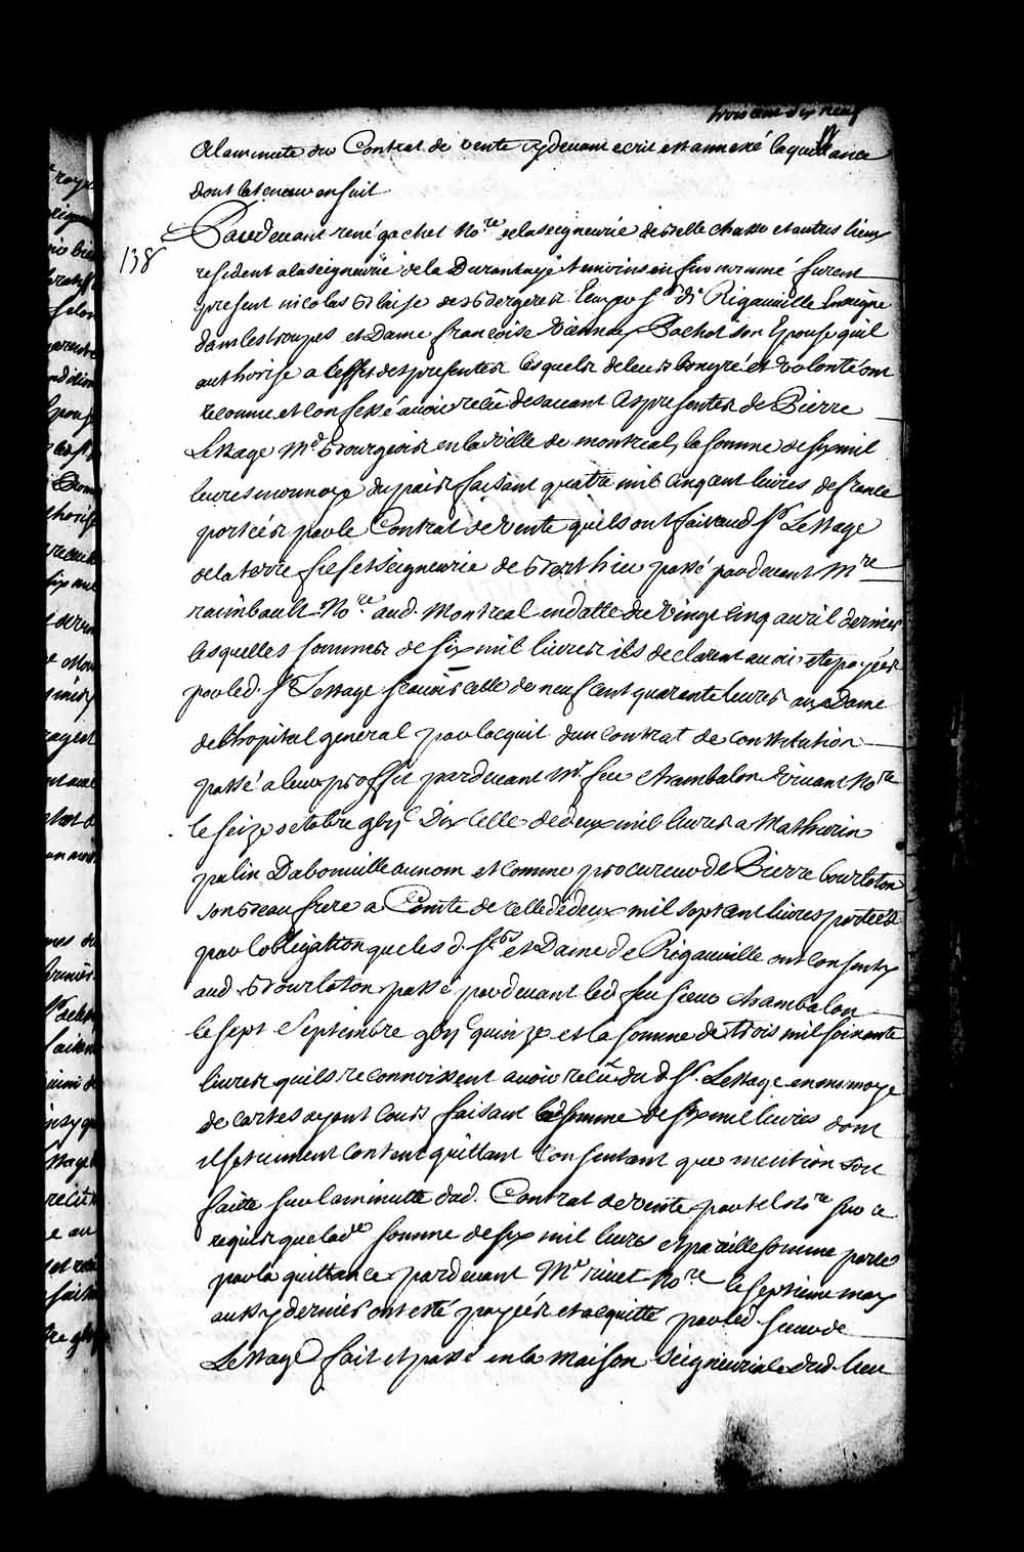 trois cent dix neuf
A la minute du Contract de vente cy devant ecrit est annexé la quittance
dont la teneur en suit
138
Pardevant rené gachet No.re de la seigneurie de belle chasse et autres lieux
resident a la seigneurie de la Durantaye temoins en fin nommé furent
present nicolas blaise des bergeres Rigauville Enseigne
dans les troupes et Dame francoise viennay Pachot son Epouse quil
authorise a leffet des presentes lesquels de leurs bon gré et volonté ont
reconnu et confessé avoir recû des avant ces presentes de Pierre
Lestage M.d bourgeois en la ville de montreal, la somme de six mil
livres monnoye du pais faisant quatre mil cinq cent livres de france
portées par le Contrat de vente quils ont fait aud S.r Lestage
de la terre fief et seigneurie de berthier passé pardevant M.re
raimbault No.re aud. Montreal en datte du vingt cinq avril dernier
lesquelles sommes de six mil livres ils declarent avoir eté payées
par led. S.r Lestage scavoir celle de neuf cent quarante livres aux Dame
de lhopital general pour lacquit dun contrat de constitution
passé a leur proffit pardevant M.r feu chambalon vivant No.re
le seize octobre gbij.C Dix Celle de deux mil livres a Mathurin
palin Dabonville au nom et comme procureur de Pierre bourloton
son beau frere a Comte de celle de deux mil sept cent livres portées
par lobligation que les d. S.rs et Dame de Rigauville ont consenty
aud bourloton passé pardevant led feu sieur chambalon
le sept Septembre gbij.C quinze et la somme de trois mil soixante
livres quils reconnoissent avoir recû du d S.r Lestage en monnoye
de cartes ayant cours faisant lad somme de six mil livres dont
il se tiennent content quittant Consentant que mention soit
faite sur la minutte dud. Contrat de vente par tel No.re sur ce
requis que lad.e somme de six mil livres et pareille somme porte
par la quittance pardevant M.e rivet No.re le septieme may
aussy dernier ont eté payées et acquitté par led. sieur de
Lestage fait et passé en la maison seigneuriale dud. lieu